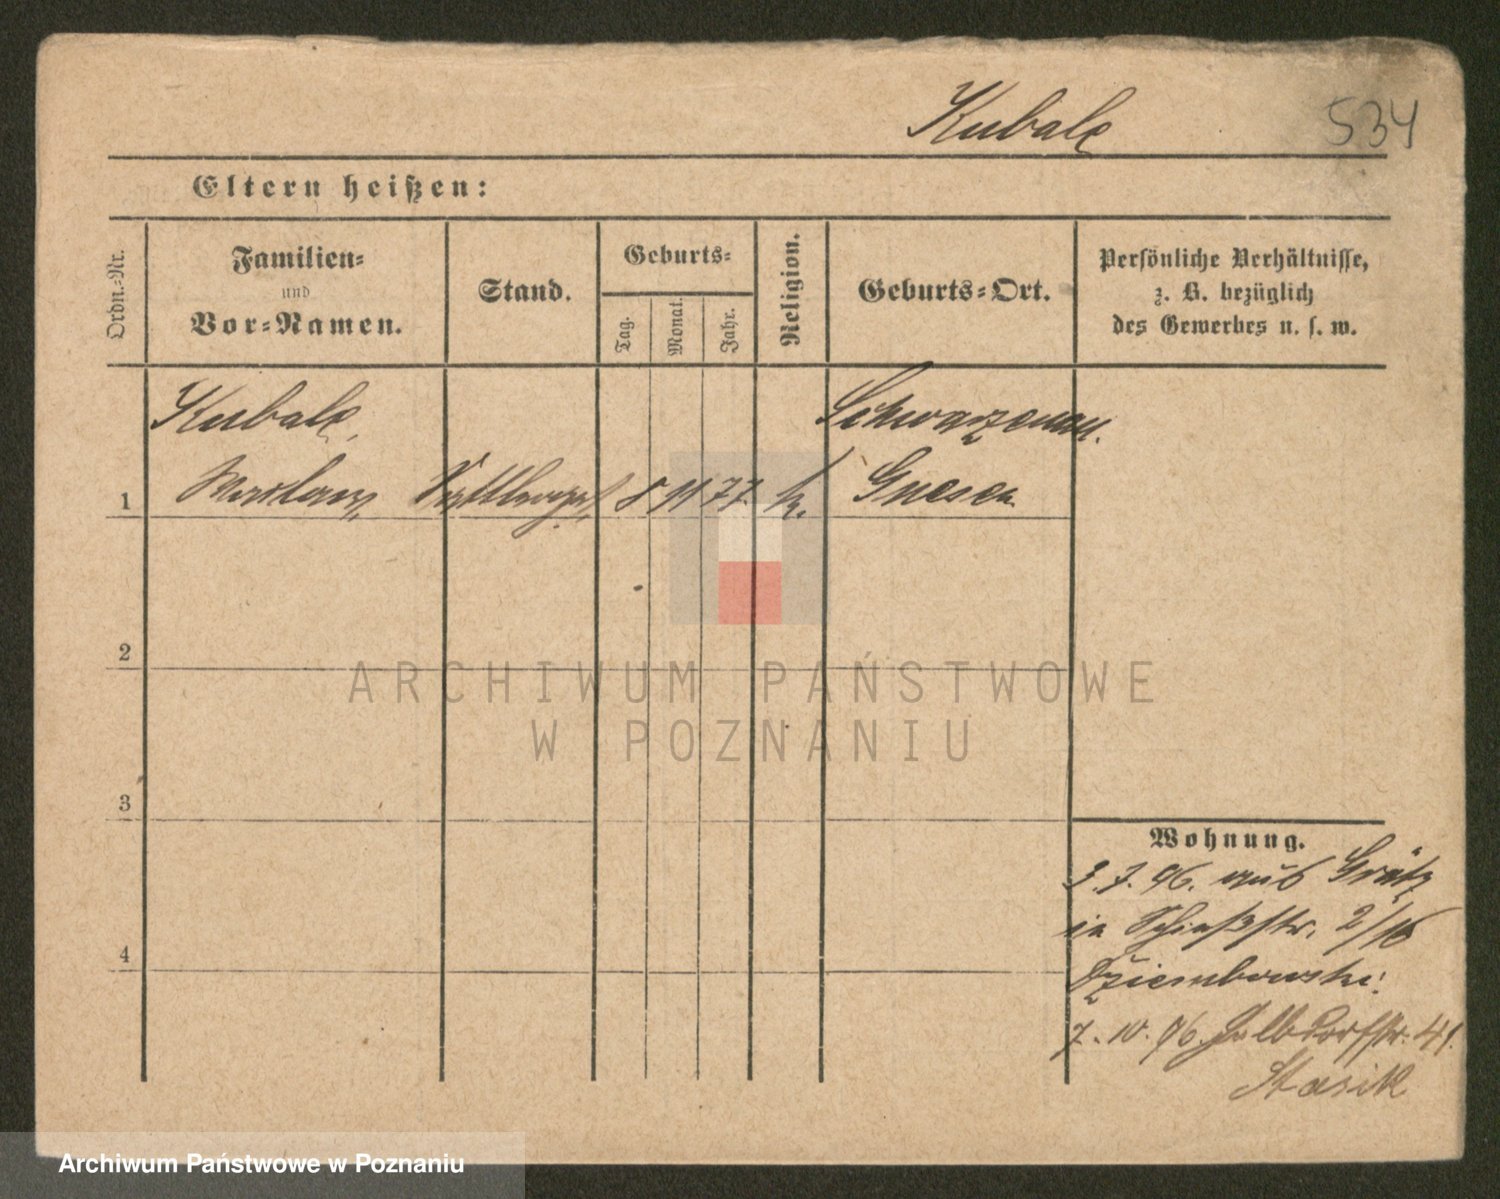 Kubale
534
Eltern heißen:
Ordn.-Nr.
Familien-
und
Vor-Namen.
Stand.
Geburts-
Tag.
Monat.
Jahr.
Religion.
Geburts-Ort.
Persönliche Verhältnisse,
z. B. bezüglich
des Gewerbes u. s. w.
Kubale,
Schwarzenau.
1
8 11 77. k. Gnesen
2
ARCHIWUM PAŃSTWOWE
W POZNANIU
3
Wohnung.
3.7.96. aus Grätz
in Schießstr. 2/10
4
Dziembowski.
7.10.96. Halbdorfstr. 41.
Stasik
Archiwum Państwowe w Poznaniu